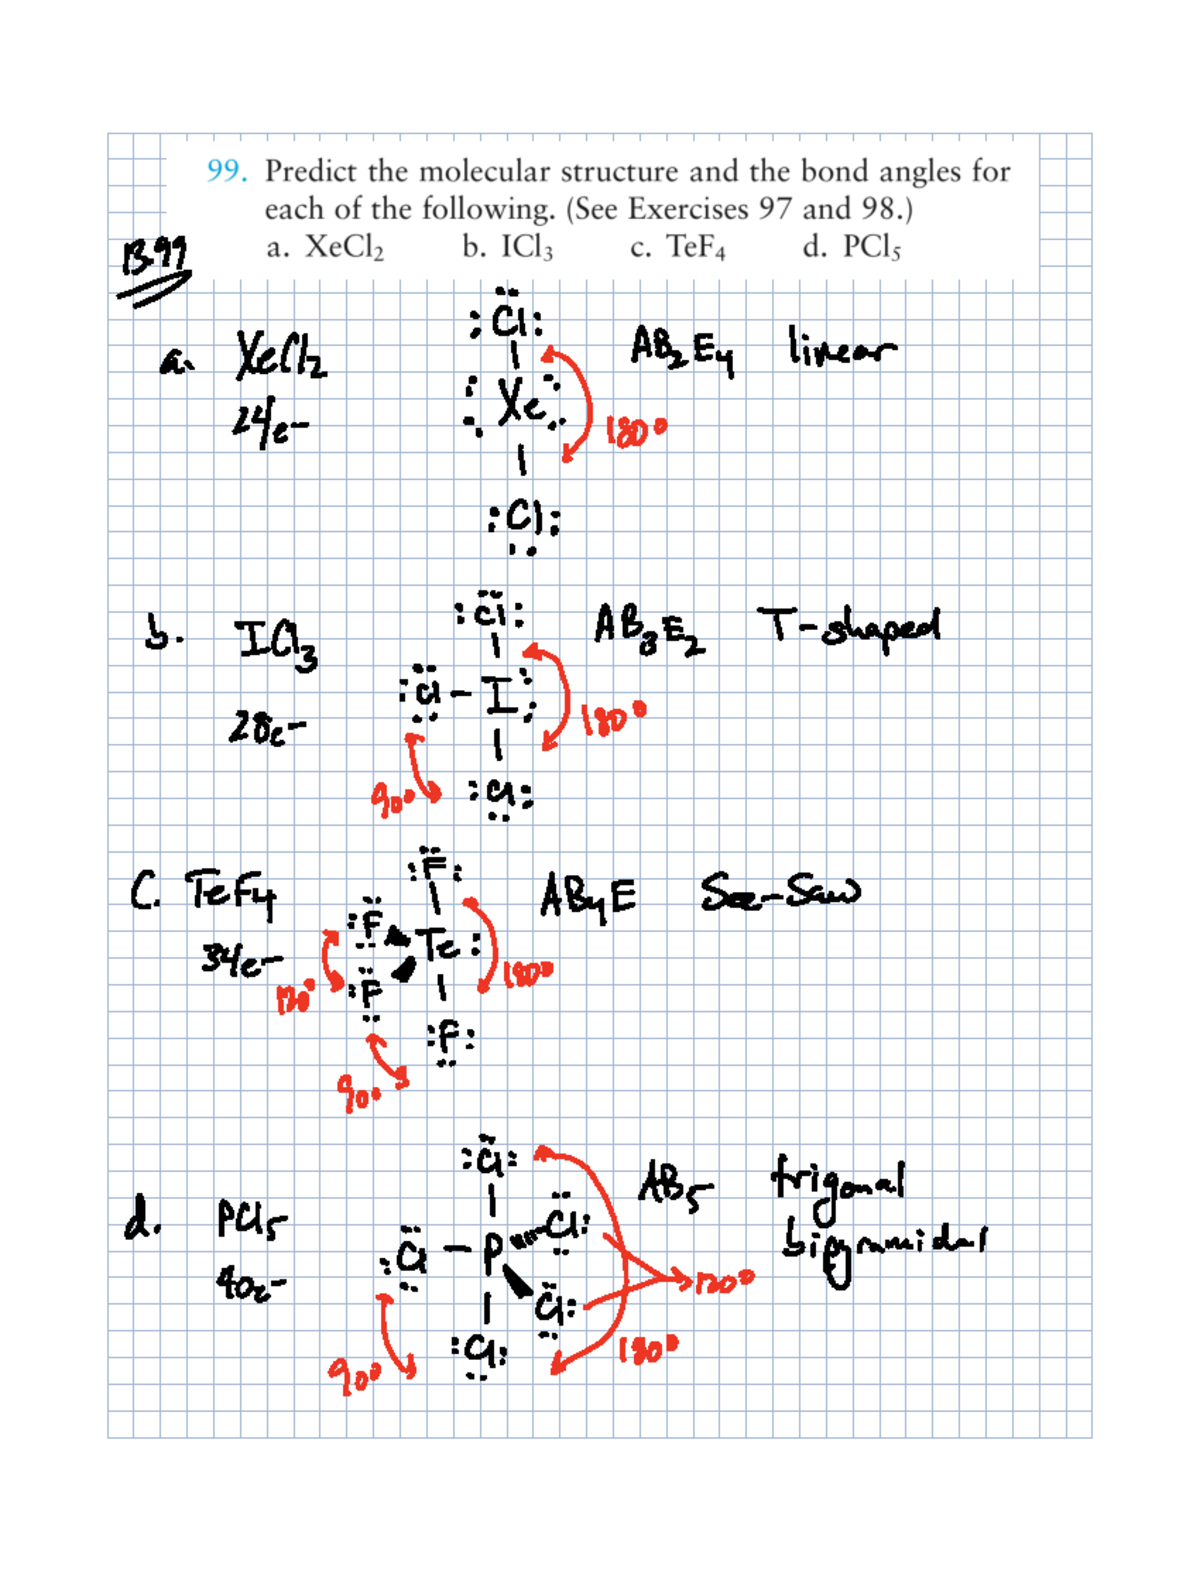 99. Predict the molecular structure and the bond angles for
each of the following. (See Exercises 97 and 98.)
a. XeCl₂ b. ICl₃ c. TeF₄ d. PCl₅
13.99
a. XeCl₂
24e-
:Cl:
Xe
:Cl:
180°
AB₂E₄ linear
b. ICl₃
28e-
:Cl:
:Cl - I:
:Cl:
180°
90°
AB₃E₂ T-shaped
C. TeF₄
34e-
:F:
:F Te:
:F
:F:
120°
180°
90°
AB₄E See-Saw
d. PCl₅
40e-
:Cl:
:Cl - P Cl:
Cl:
:Cl:
90°
120°
180°
AB₅ trigonal
bipyramidal